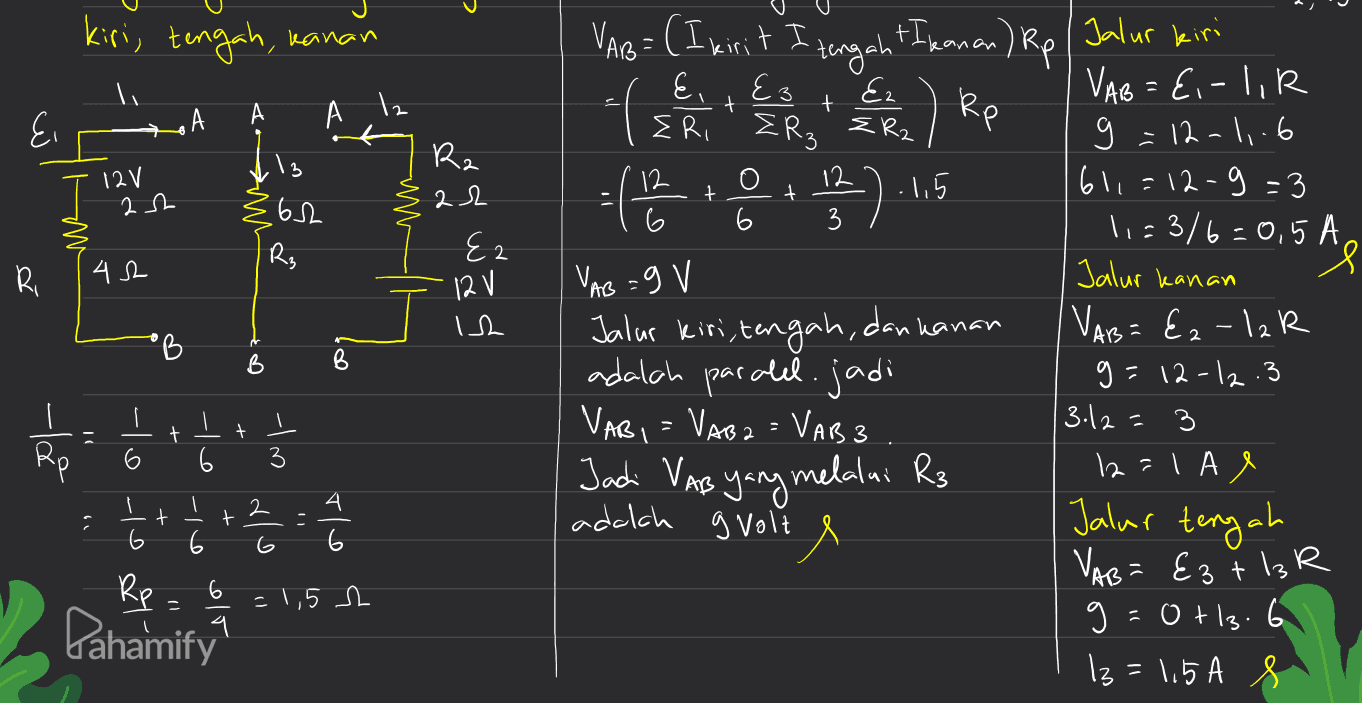 kiri, tengah, kanan
I₁ A A A I₂
ℰ₁ I₃ R₂
12V
2Ω 6Ω 2Ω
R₃ ℰ₂
R₁ 4Ω 12V
1Ω
B B B
1/Rp = 1/6 + 1/6 + 1/3
= 1/6 + 1/6 + 2/6 = 4/6
Rp/1 = 6/4 = 1,5 Ω
Pahamify
V_AB = (I kiri + I tengah + I kanan) Rp
= (ℰ₁/ΣR₁ + ℰ₃/ΣR₃ + ℰ₂/ΣR₂) Rp
= (12/6 + 0/6 + 12/3) . 1,5
V_AB = 9 V
Jalur kiri, tengah, dan kanan
adalah paralel. jadi
V_AB1 = V_AB2 = V_AB3.
Jadi V_AB yang melalui R₃
adalah 9 Volt
Jalur kiri
V_AB = ℰ₁ - I₁R
9 = 12 - I₁.6
6I₁ = 12 - 9 = 3
I₁ = 3/6 = 0,5 A
Jalur kanan
V_AB = ℰ₂ - I₂R
9 = 12 - I₂.3
3.I₂ = 3
I₂ = 1 A
Jalur tengah
V_AB = ℰ₃ + I₃R
9 = 0 + I₃.6
I₃ = 1,5 A